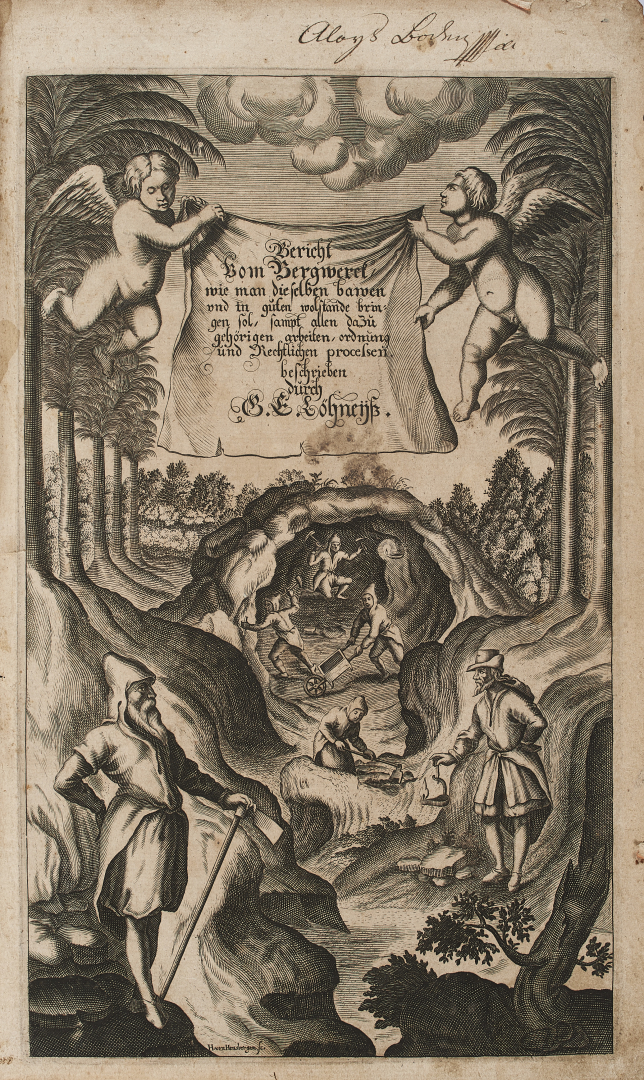 Aloys
Bericht
Vom Bergwerck
wie man dieselben bawen
vnd in guten wolstande brin-
gen sol, sampt allen dazu
gehörigen arbeiten, ordning
und Rechtlichen processen
beschrieben
durch
G. E. Löhneiß.